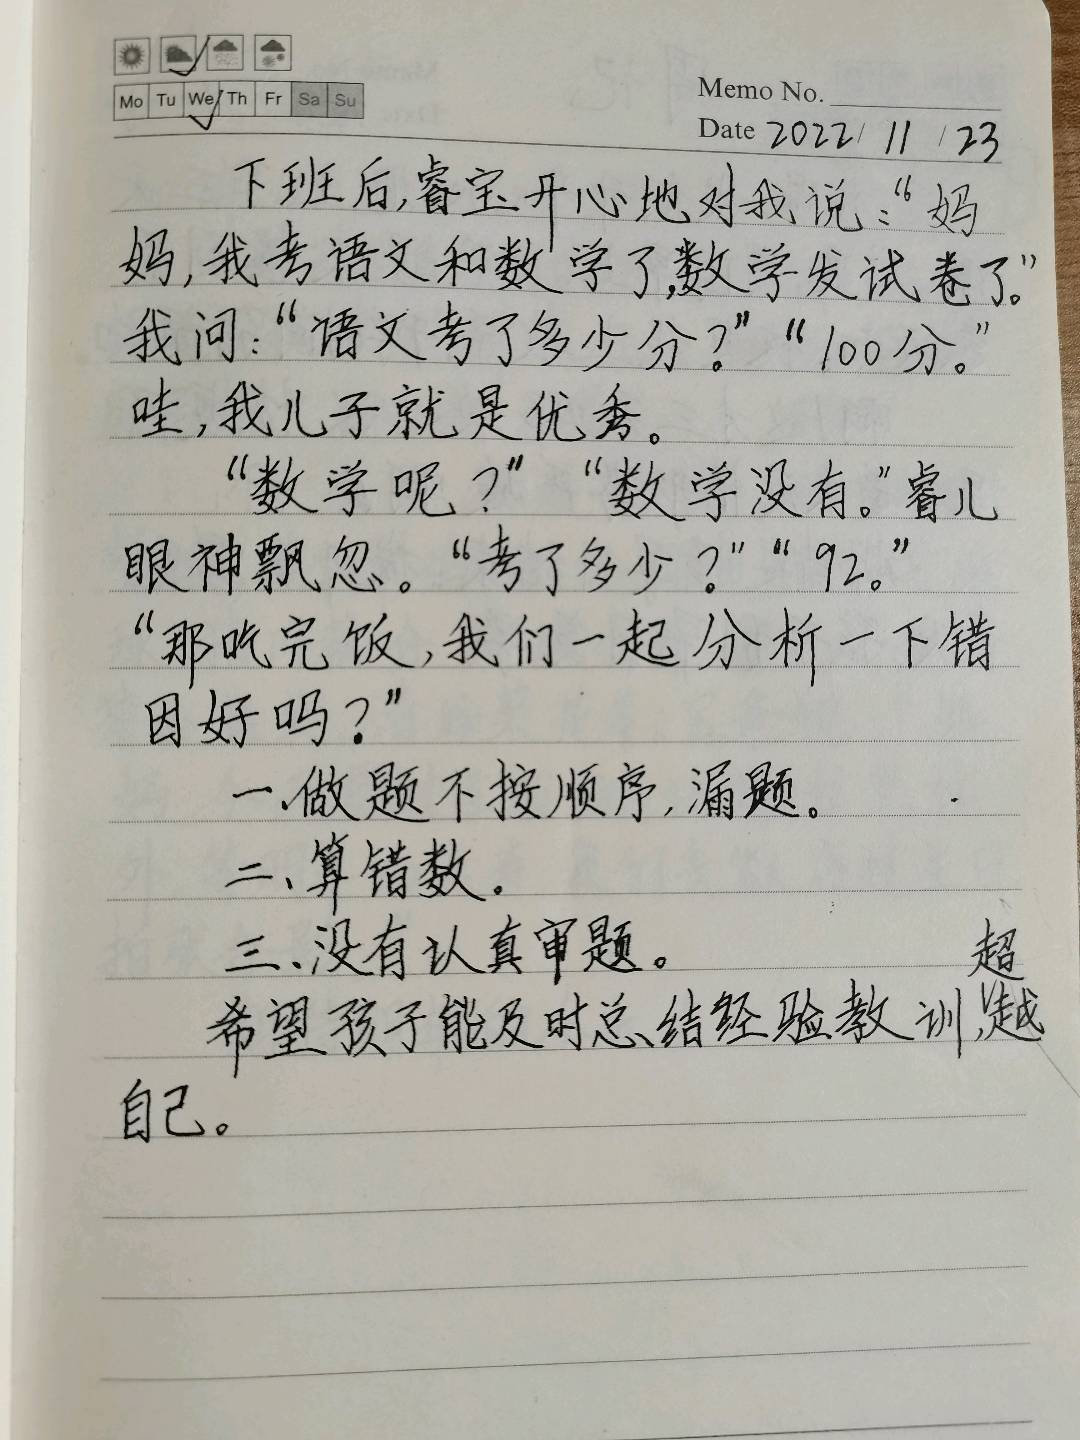 Mo Tu We Th Fr Sa Su
Memo No.
Date 2022/ 11 / 23
下班后,睿宝开心地对我说:“妈
妈,我考语文和数学了,数学发试卷了。”
我问:“语文考了多少分?”“100分。”
哇,我儿子就是优秀。
“数学呢?”“数学没有。”睿儿
眼神飘忽。“考了多少?”“92。”
“那吃完饭,我们一起分析一下错
因好吗?”
一、做题不按顺序,漏题。
二、算错数。
三、没有认真审题。
希望孩子能及时总结经验教训,超越
自己。